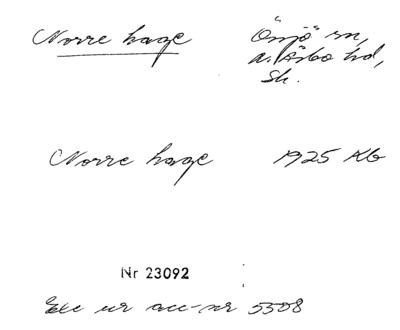 Norre hage "Önnjö" sn,
N. Åsbo hd,
Sk.
Norre hage 1925 KG
Nr 23092
Exc ur acc-nr 5508